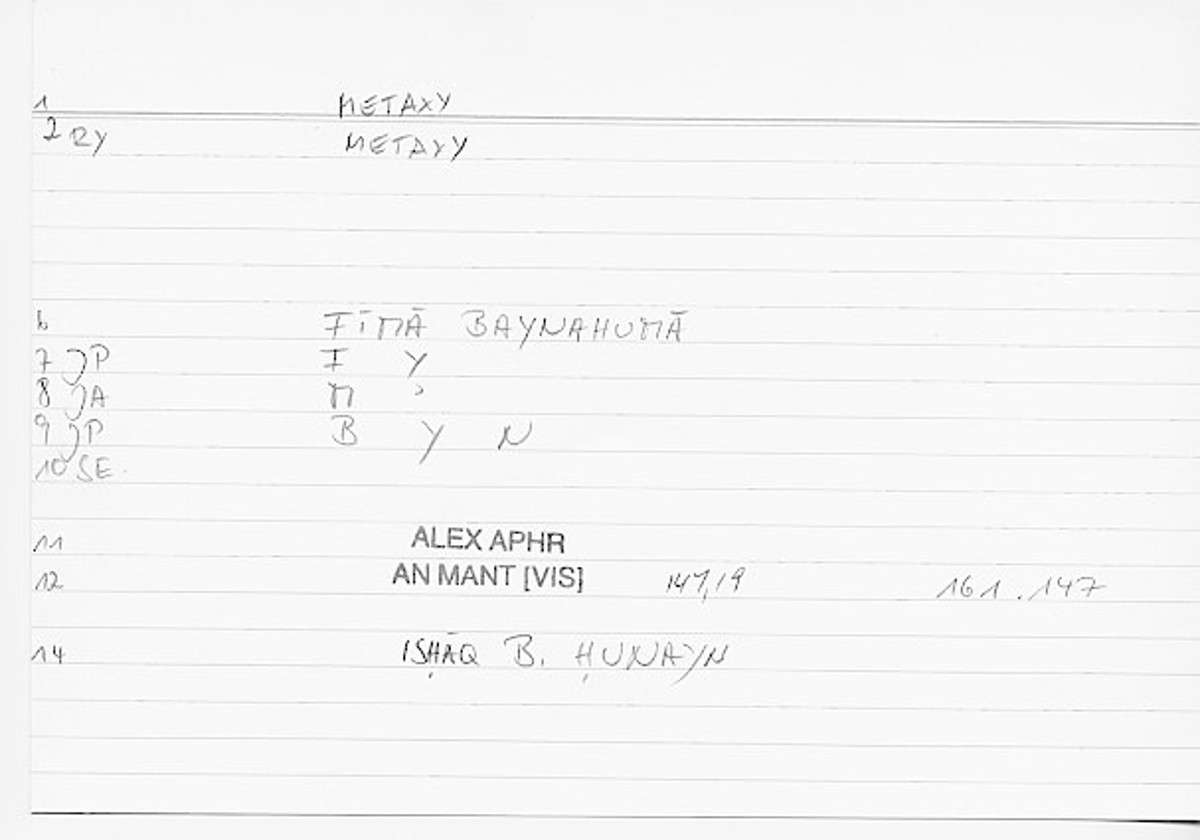 1 METAXY
2 RY METAXY
6 FĪMĀ BAYNAHUMĀ
7 JP F Y
8 JA M ʾ
9 JP B Y N
10 SE.
11 ALEX APHR
12 AN MANT [VIS] 147,19 161.147
14 ISḤĀQ B. ḤUNAYN